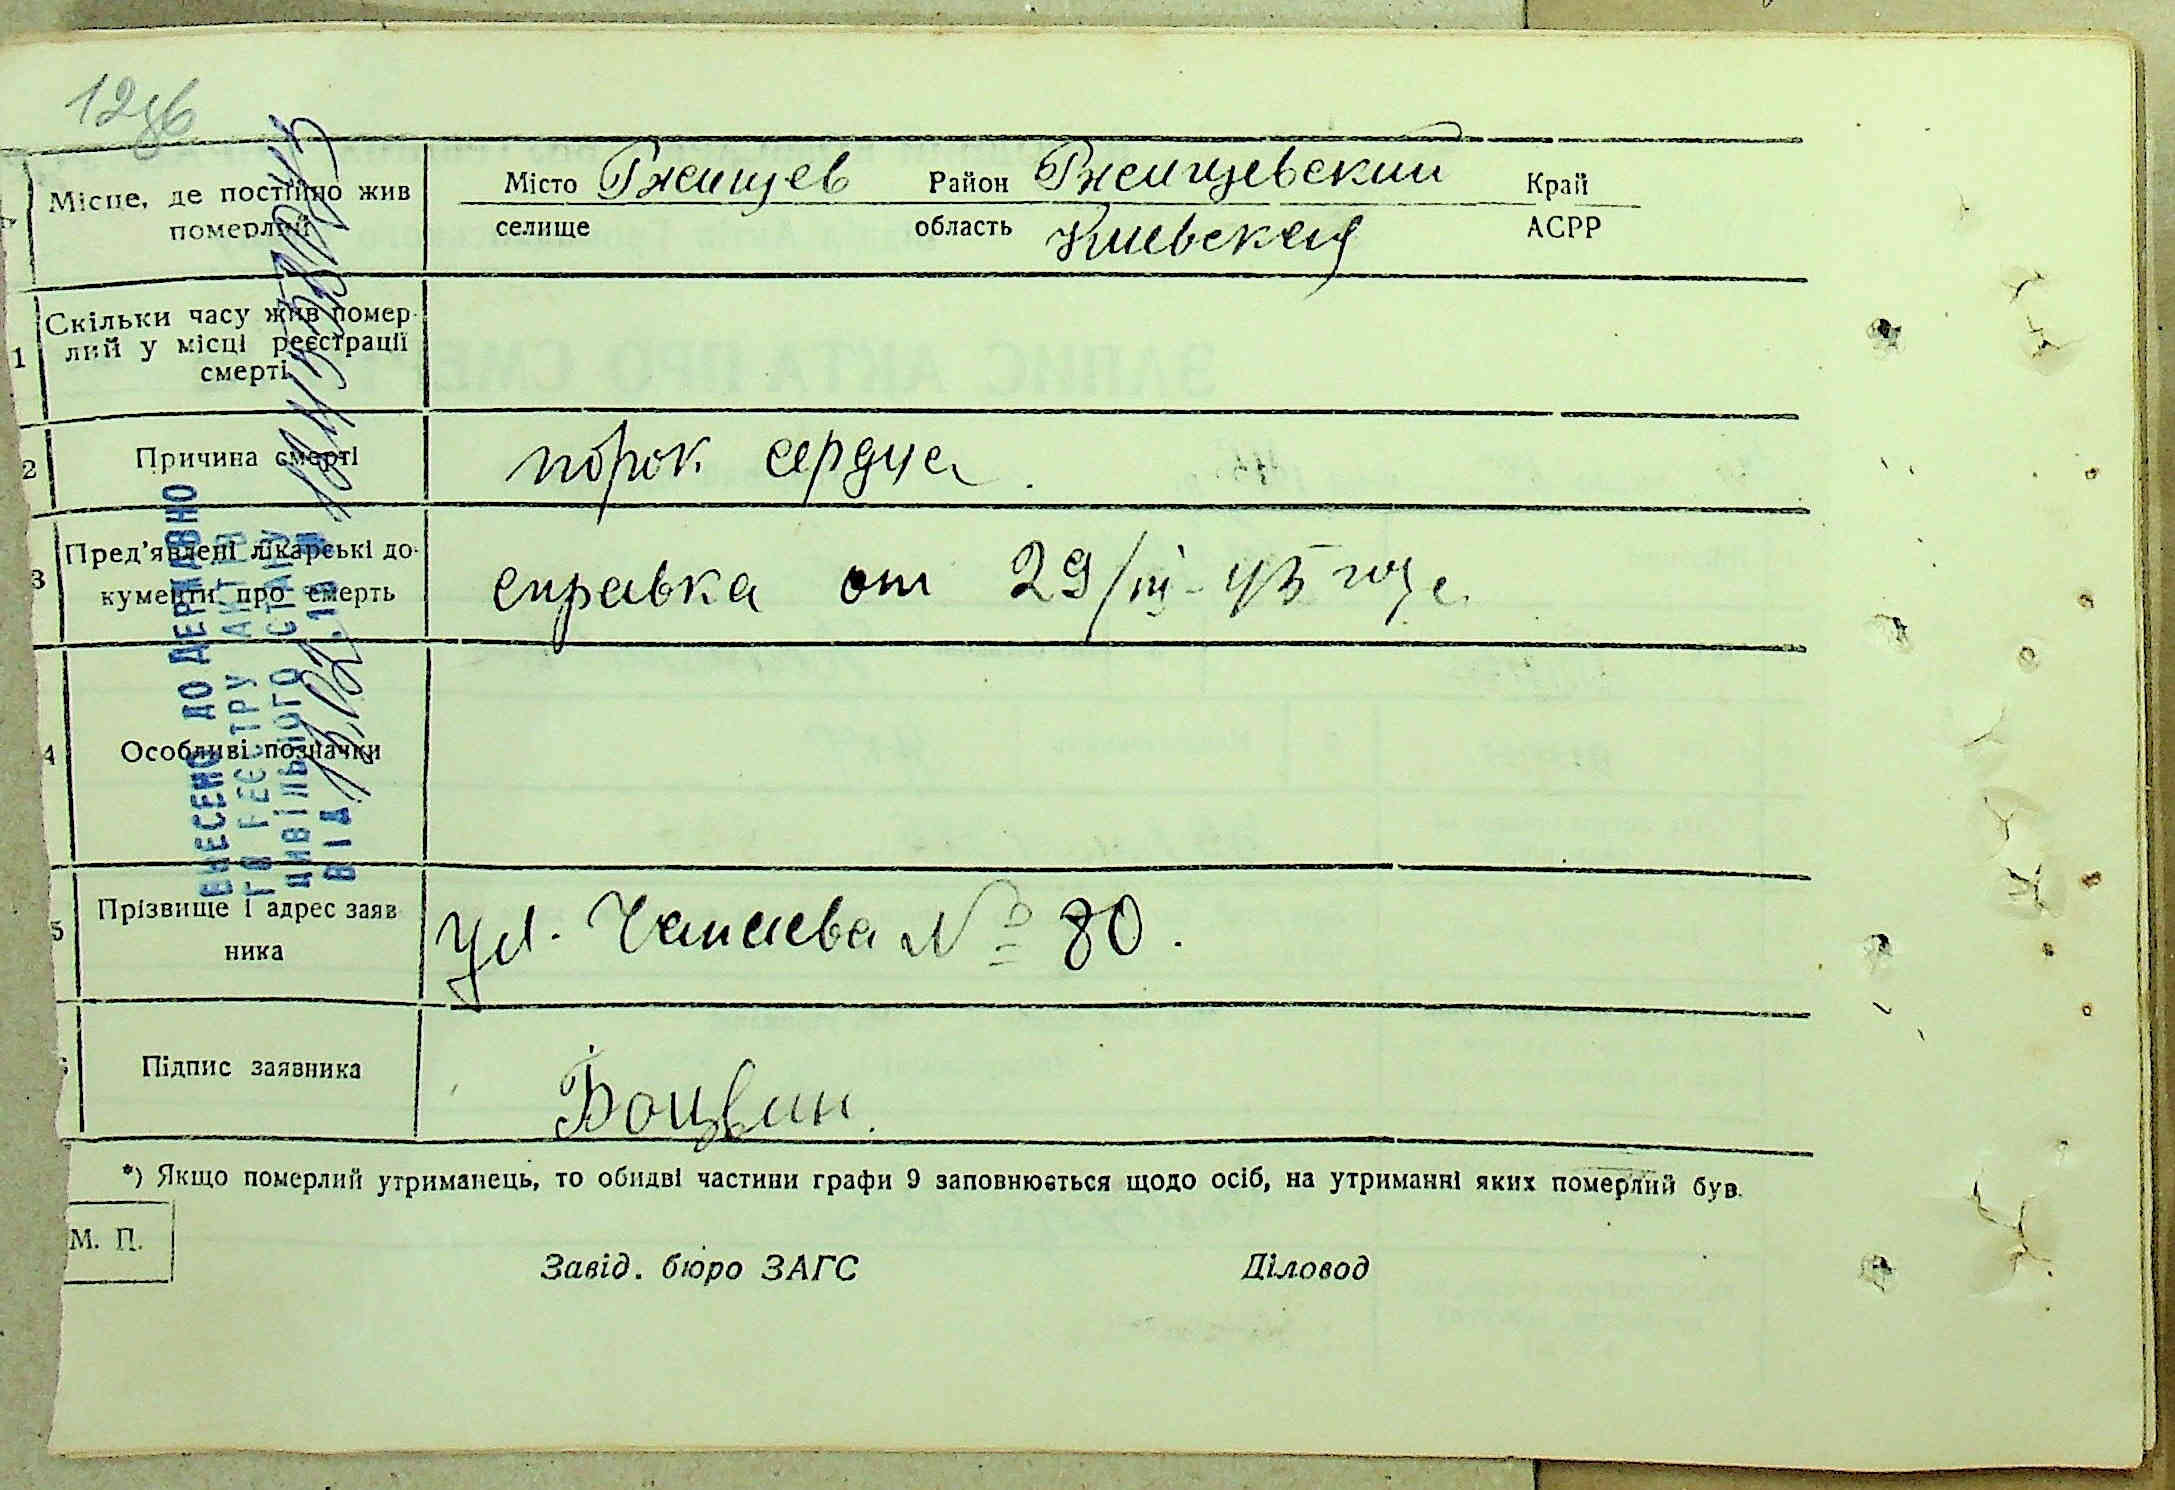 Місце, де постійно жив
померлий
Місто Ржищев Район Ржищевский Край
селище область Киевская АСРР
1 Скільки часу жив помер-
лий у місці реєстрації
смерті
2 Причина смерті порок сердца.
3 Пред'явлені лікарські до-
кументи про смерть
справка от 29/III-45 года
4 Особливі позначки
ВНЕСЕНО ДО ДЕРЖАВНО
ГО РЕЄСТРУ АКТІВ
ЦИВІЛЬНОГО СТАНУ
ВІД
5 Прізвище і адрес заяв
ника
ул. Чапаева № 80.
Підпис заявника
*) Якщо померлий утриманець, то обидві частини графи 9 заповнюється щодо осіб, на утриманні яких померлий був.
М. П.
Завід. бюро ЗАГС Діловод